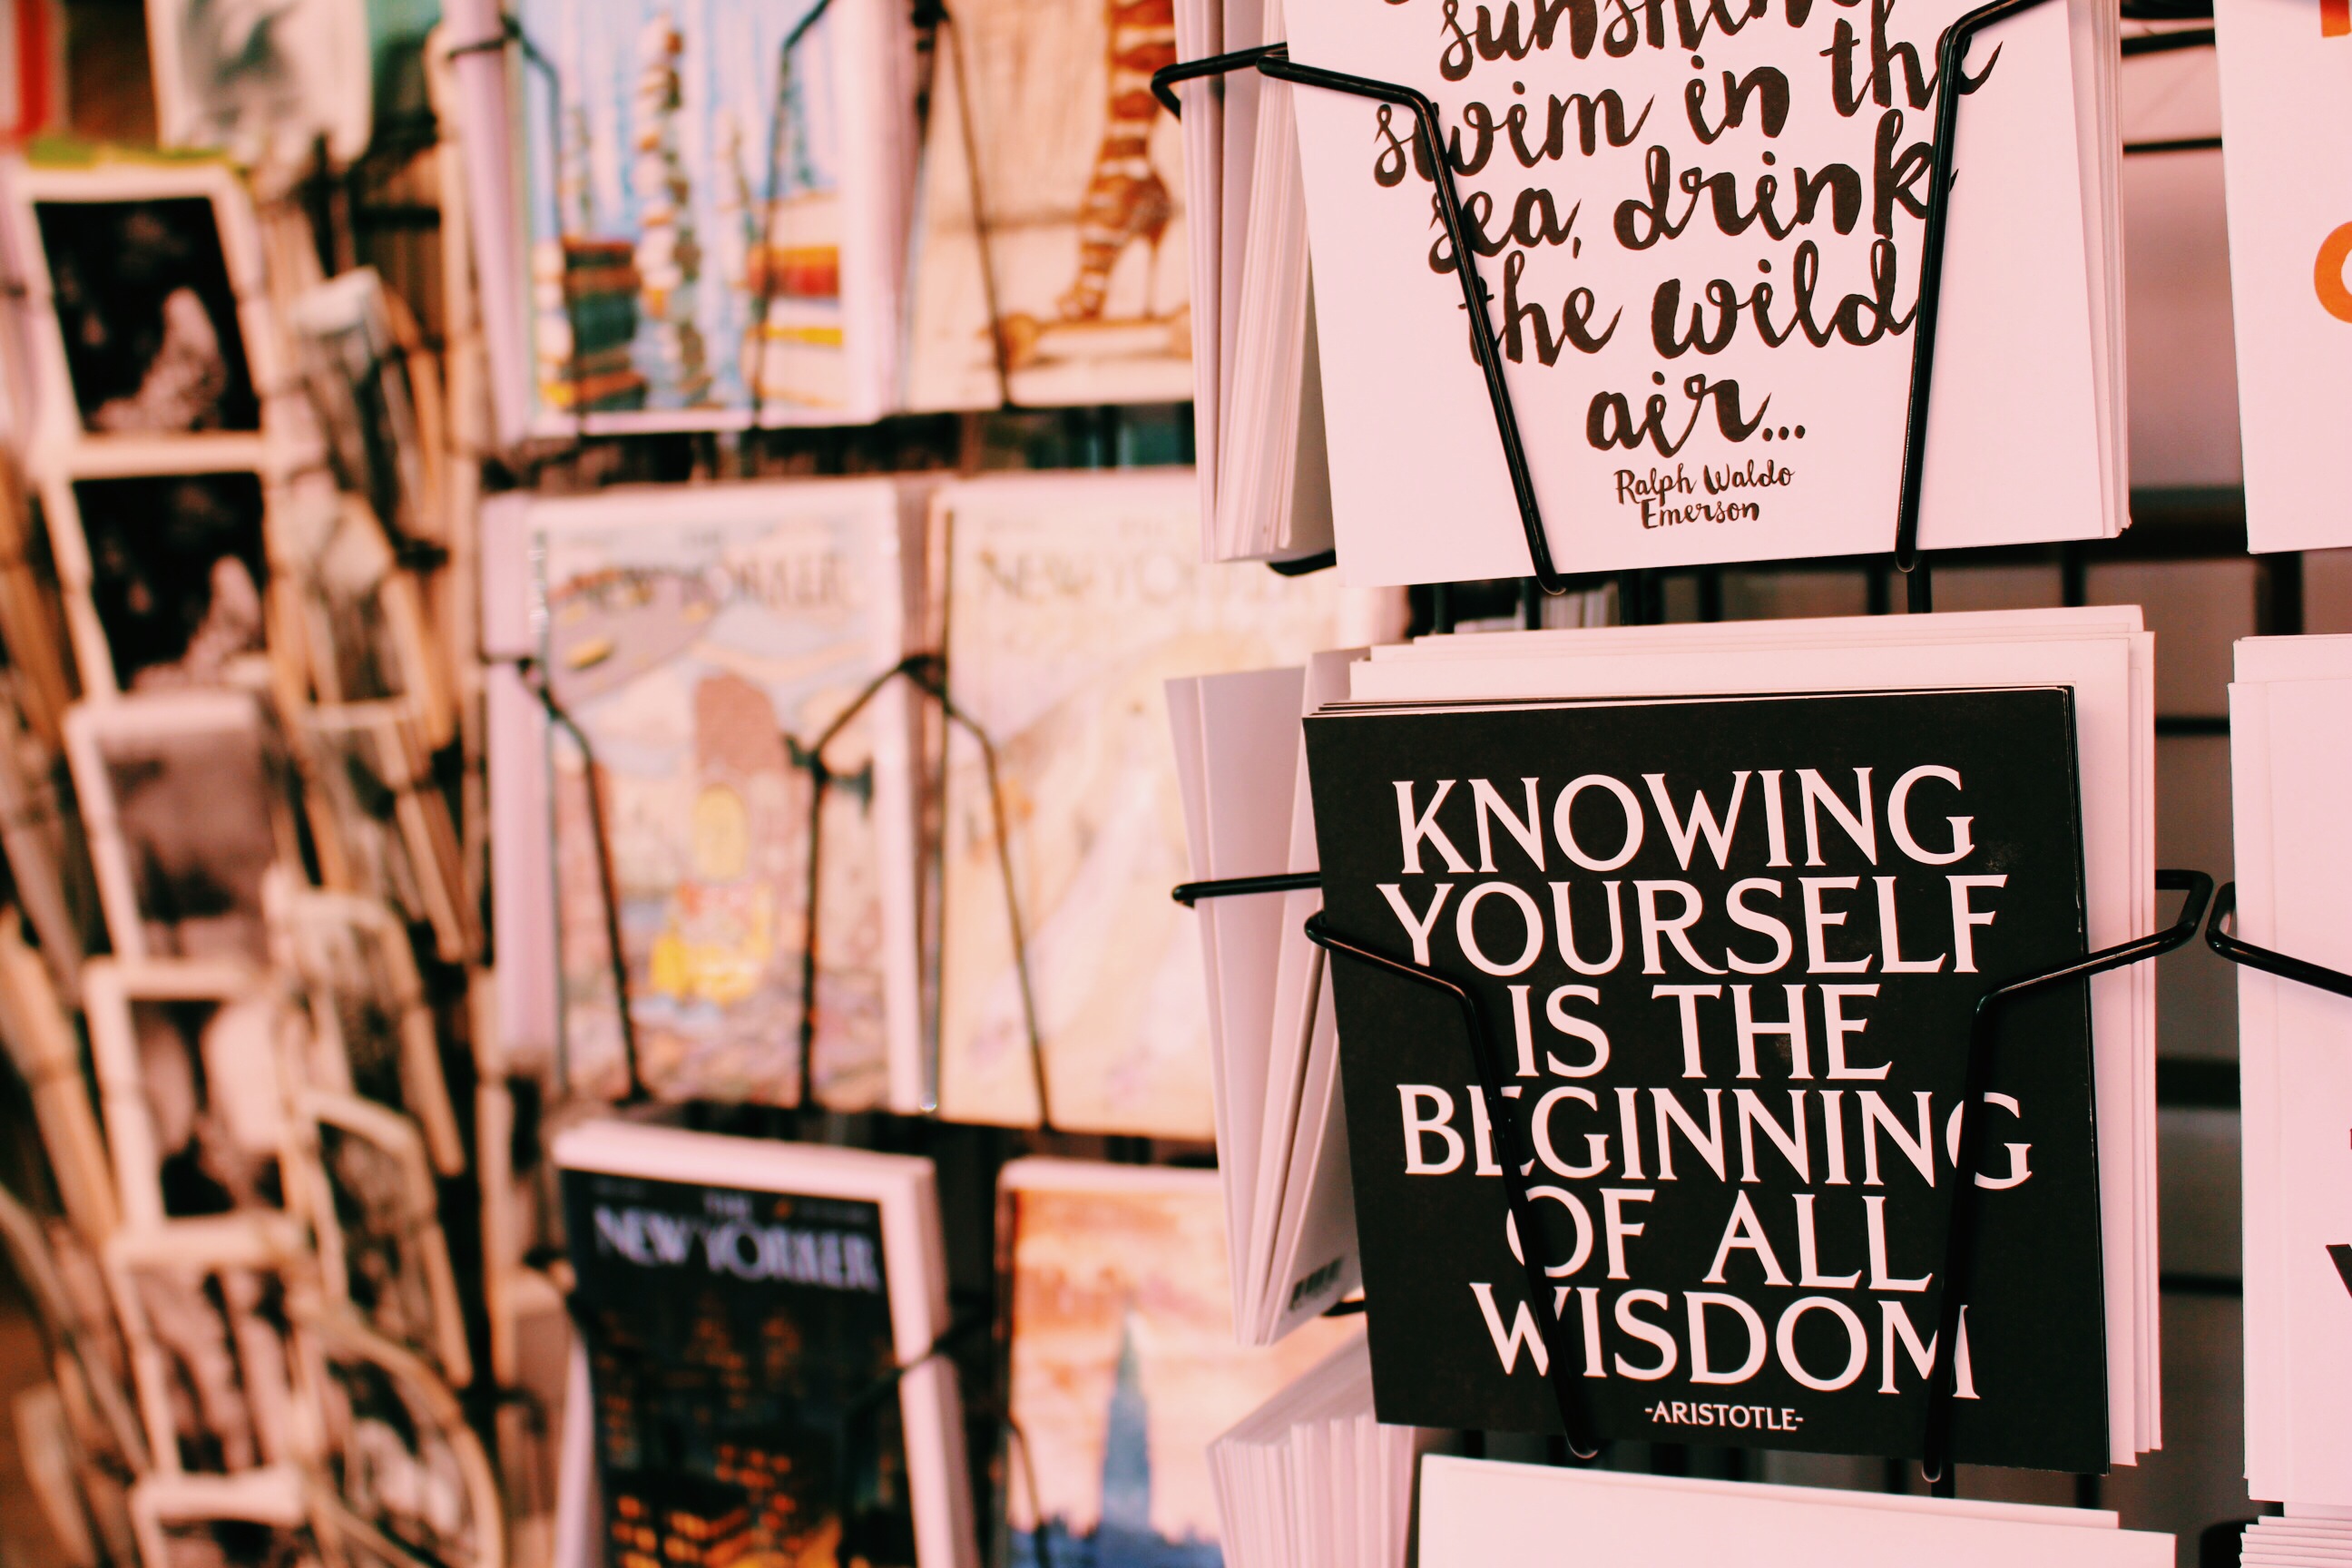 sunshine
swim in the
sea, drink
the wild
air...
Ralph Waldo
Emerson
KNOWING
YOURSELF
IS THE
BEGINNING
OF ALL
WISDOM
-ARISTOTLE-
THE
NEW YORKER
NEW YORKER
THE
NEW YORKER